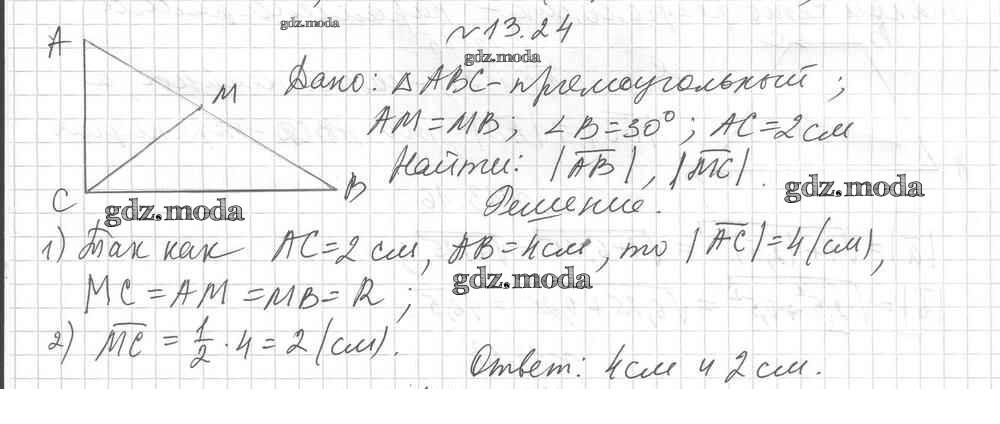 gdz.moda
№13.24
gdz.moda
A
M
C
B
Дано: △ABC-прямоугольный;
AM=MB; ∠B=30°; AC=2см
Найти: |AB|, |MC|.
gdz.moda
gdz.moda
Решение.
1) Так как AC=2см, AB=4см, то |AC|=4(см),
gdz.moda
MC=AM=MB=R;
2) MC = 1/2 · 4 = 2(см).
Ответ: 4см и 2см.